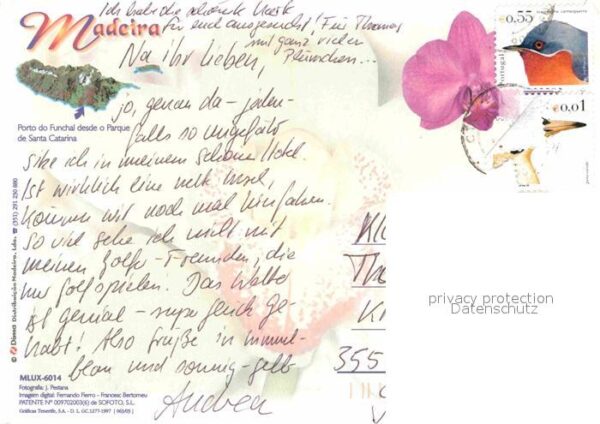 Ich habe die schönste Karte
für euch ausgesucht! Für Thomas
mit ganz vielen
Blümchen...
Madeira
Na ihr Lieben,
ja, genau da - jeden-
falls so ungefähr
sitze ich in meinem schönen Hotel.
Ist wirklich eine nette Insel,
können wir noch mal hinfahren.
So viel sehe ich nicht mit
meinen Golfer-Freunden, die
nur Golf spielen. Das Wetter
ist genial - super Glück ge-
habt! Also Grüße in himmel-
blau und sonnig-gelb
Andrea
Porto do Funchal desde o Parque
de Santa Catarina
© Dismo Distribuição Madeira, Lda. ☎ (351) 291 230 880
MLUX-6014
Fotografia: J. Pestana
Imagem digital: Fernando Fierro - Francesc Bertomeu
PATENTE Nº 009702003(6) de SOFOTO, S.L.
Gráficas Tenerife, S.A. - D. L. GC.1277-1997 [065/05]
0,55
Portugal
€0,01
355
privacy protection
Datenschutz